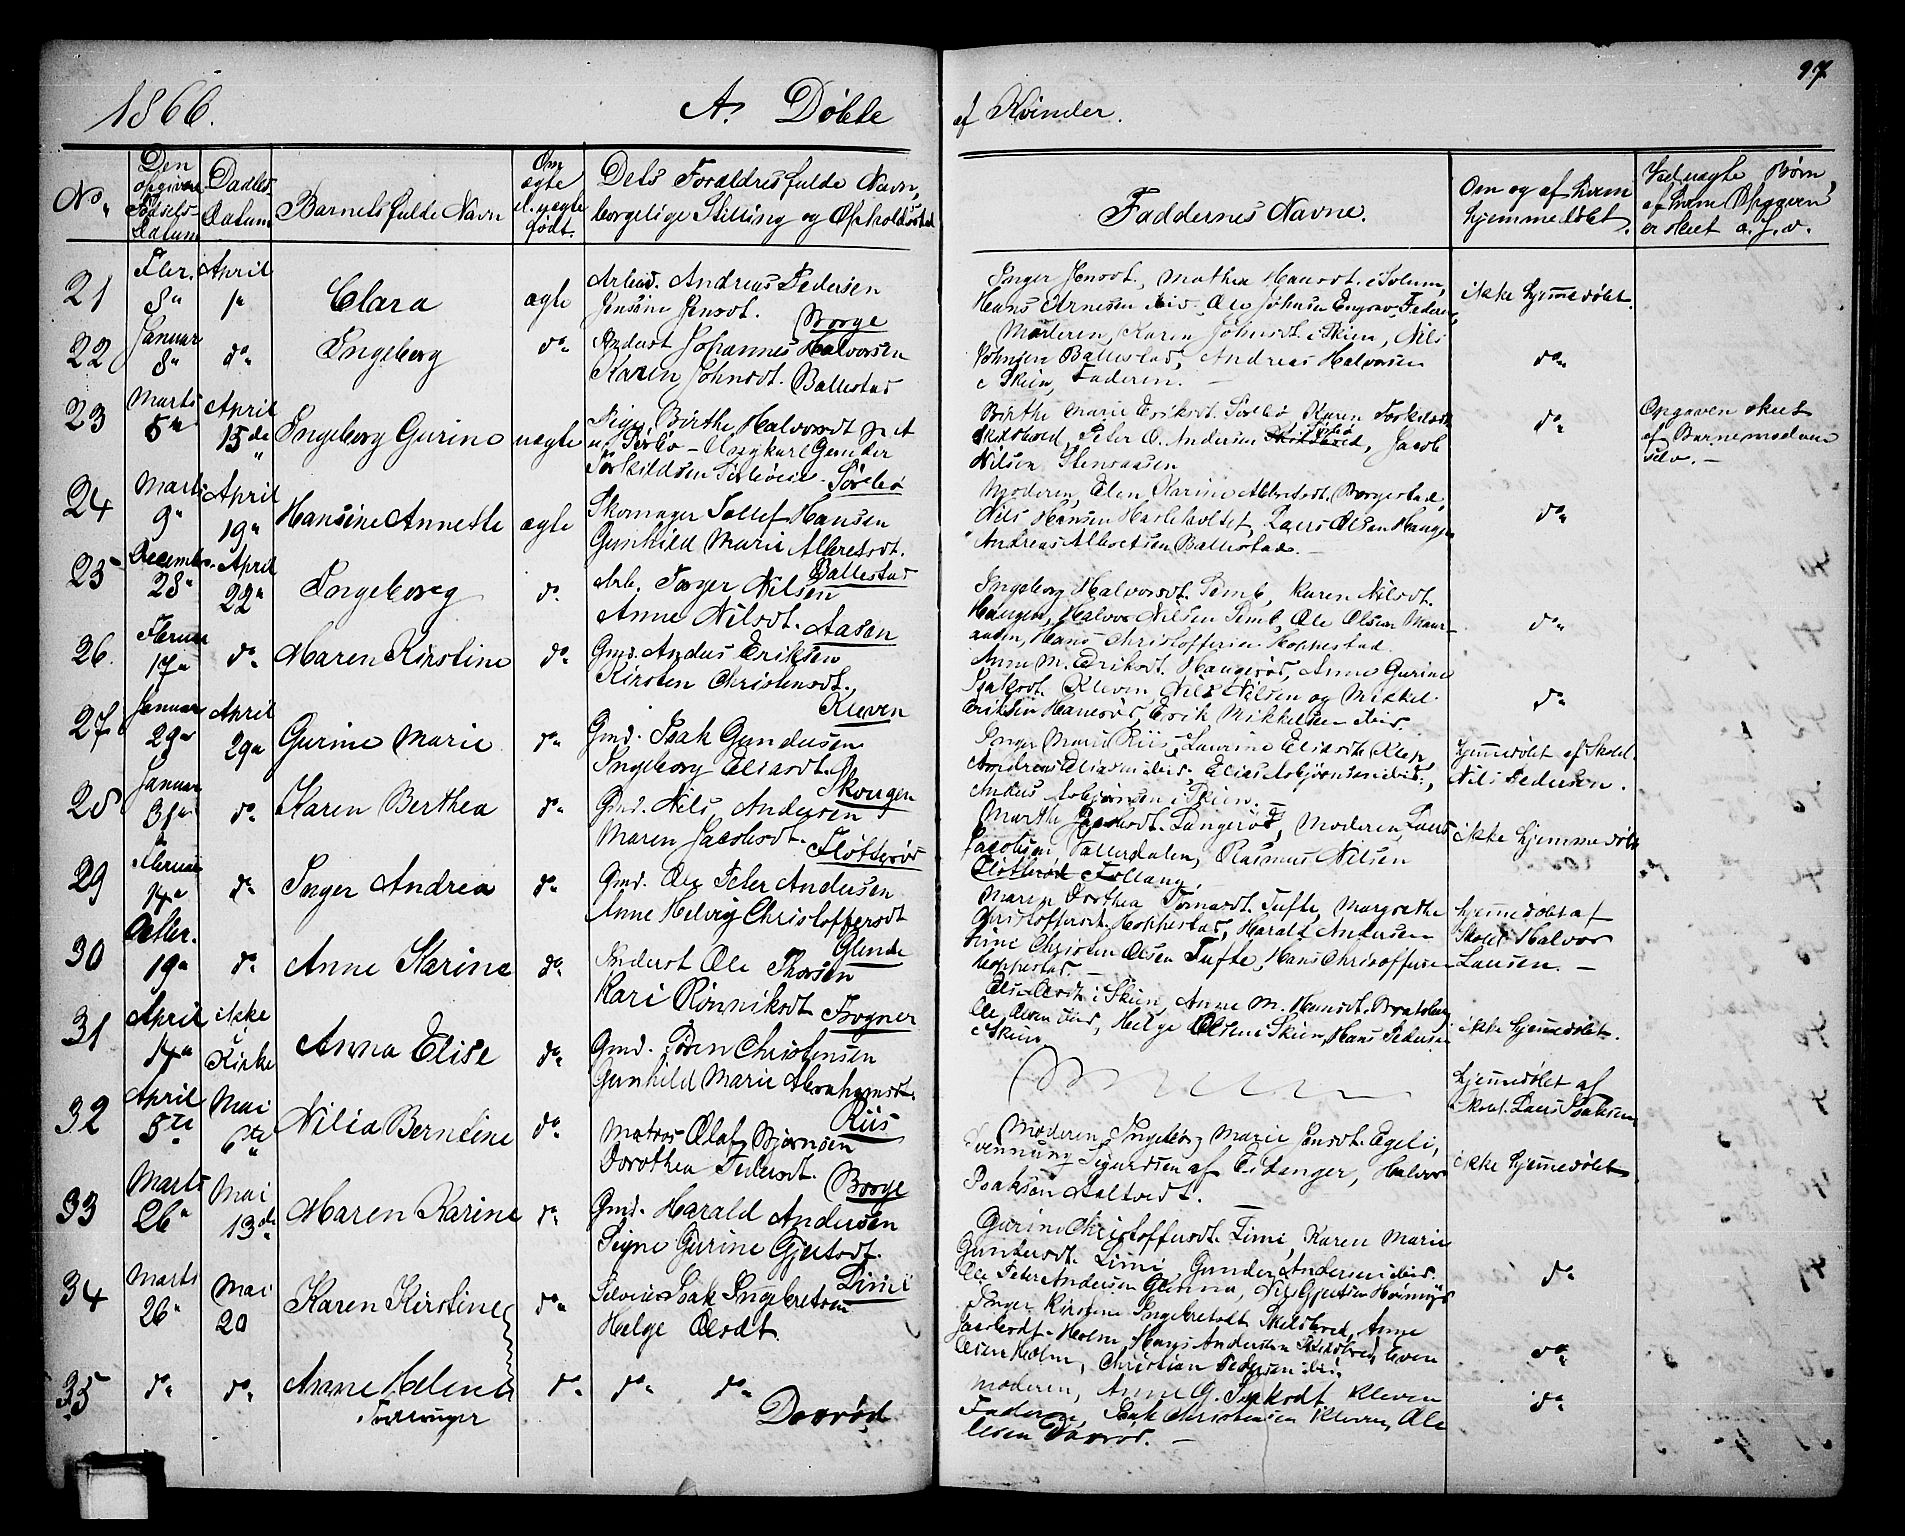 1866.
A. Döbte
af Kvinder.
97
No.
Den opgivne Fødsels Datum
Daabs Datum
Barnets fulde Navn
Om ægte el. uægte født.
Dets Forældres fulde Navn,
borgelige Stilling og Opholdssted
Faddernes Navne.
Om og af hvem
hjemmedöbt.
Ved uægte Børn,
af hvem Opgaven
er skeet o.s.v.
21
Febr. 8de
April 1ste
Clara
ægte
Arbeid. Andreas Pedersen
Jensine Jensdt.
Borge
Inger Jensdt., Mathea Hansdt. i Solum,
Hans Arnesen ibid. Ole Johnsen Faderen
ikke hjemmedöbt.
22
Januar 8"
do
Ingeborg
do
Inderst Johannes Halvorsen
Karen Johnsdt. Ballestad
Moderen, Karen Johnsdt. i Skien, Nils
Johnsen Ballestad, Andreas Halvorsen
i Skien, Faderen. —
do
23
Marts 5te
April 15de
Ingeborg Gurine
uægte
Pige Birthe Halvorsdt
Ungkarl Gunder
Torkildsen Sörböeie. Sörbö
Birthe Marie Eriksdt. Sörbö, Karen Torkildsdt
Skildbred, Peter O. Andersen Sörbö, Jacob
Nilsen Stensaasen
do
Opgaven skeet
af Barnemoderen
selv. —
24
Marts 9"
April 19"
Hansine Annette
ægte
Skomager Tollef Hansen
Gunhild Marie Albretsdt.
Ballestad
Moderen, Elen Karine Albretsdt. Borgestad,
Nils Hansen Hasleholtet, Lars Olsen Haugen
Andreas Albretsen Ballestad. —
do
25
December 28"
April 22"
Ingeborg
do
Arb. Torger Nilsen
Anne Nilsdt. Aasen
Ingeborg Halvorsdt. Temb, Karen Nilsdt.
Haugen, Halvor Nilsen Temb, Ole Olsen
Hans Christoffersen Hoppestad.
do
26.
Februar 17"
do
Maren Kirstine
do
Gmd. Anders Eriksen
Kirsten Christensdt.
Kleven
Anne M. Eriksdt. Haugerød, Anne Gurine
Isaksdt. Kleven, Nils Nilsen og Mikkel
Eriksen Hanerød, Erik Mikkelsen ibid.
do
27
Januar 29"
April 29"
Gurine Marie
do
Gmd. Isak Gundersen
Ingeborg Eliasdt.
Skougen
Inger Marie Riis, Laurine Eliasdt. Klep,
Andreas Eliasen ibid., Elias Asbjørnsen ibid.,
Anders Asbjørnsen i Skien. —
hjemmedöbt af Skolel.
Nils Pedersen.
28
Januar 31"
do
Karen Berthea
do
Gmd. Nils Andersen
Maren Jacobsdt. Fløtterød
Marthe Jacobsdt. Langerød, Moderen, Lars
Jacobsen Fallerdalen, Rasmus Nilsen
Fløtterød
ikke hjemmedöbt
29
Februar 14"
do
Inger Andrea
do
Gmd. Ole Peter Andersen
Anne Helvig Christoffersdt
Glende
Maren Dorthea Tufte, Margrethe
Christoffersdt. Hoppestad, Harald Andersen
Limi Christen Olsen Tufte, Hans Christoffersen
Hoppestad. —
hjemmedöbt af
Skolel. Halvor
Larsen. —
30
Octbr. 19"
do
Anne Karine
do
Inderst Ole Thorsen
Kari Rønniksdt Fogner
Else Olsdt i Skien, Anne M. Hansdt. Bratsberg
Ole Olsen ibid, Helge Olsen i Skien, Hans Pedersen
i Skien
ikke hjemmedöbt.
31
April 14"
ikke i Kirke
Anna Elise
do
Gmd. Sören Christensen
Gunhild Marie Abrahamsdt.
Riis
hjemmedöbt af
Skolel. Lars Isaksen
32
April 5te
Mai 6te
Nilia Berntine
do
Matros Olaf Bjørnsen
Dorothea Pedersdt.
Borge
Moderen, Ingeborg Marie Jensdt. Egeli,
Svennung Sigurdsen af Eidanger, Halvor
Isaksen Aaltvedt. —
ikke hjemmedöbt
33
Marts 26"
Mai 13de
Maren Karine
do
Gmd. Harald Andersen
Signe Gurine Gjertsdt.
Limi
Gurine Christoffersdt. Limi, Karen Marie
Gundersdt. Limi, Gunder Andersen ibid.
Ole Peter Andersen Glenna, Nils Gjertsen
do
34
Marts 26"
Mai 20
Karen Kirstine
do
Selveier Isak Ingebretsen
Helge Olsdt.
Inger Kirstine Ingebretsdt Skildbred, Anne
Jacobsdt. Holm, Hans Andersen Skildbred, Even
Olsen Holm, Christian Pedersen ibid.
do
35
do
do
Anne Helene
Tvillinger
do
do do
Davrød
Moderen, Anne G. Isaksdt Kleven
Faderen, Isak Christensen Kleven, Ole
Olsen Davrød. —
do